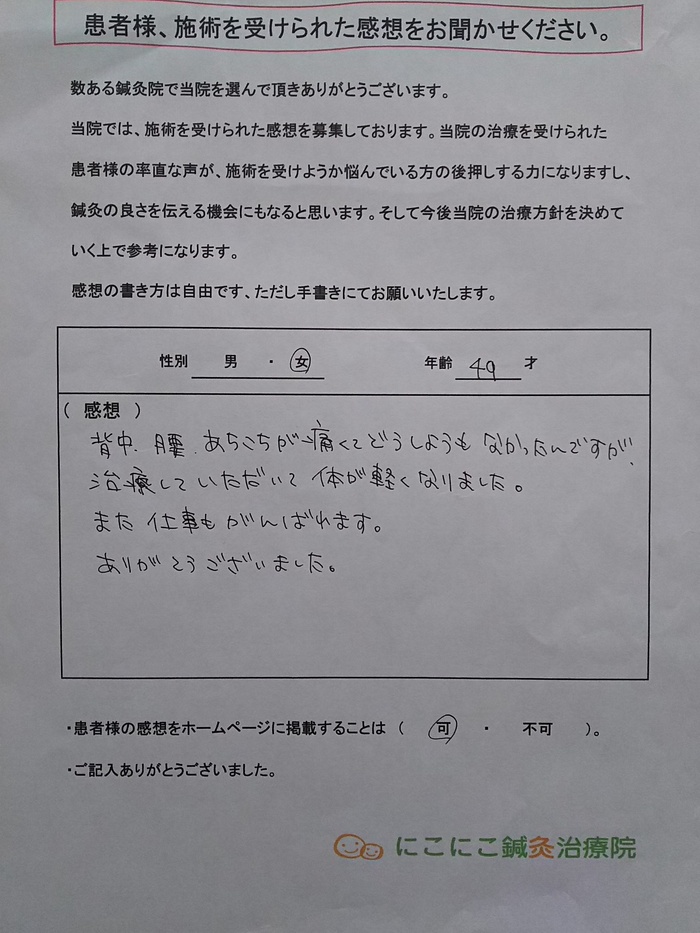 患者様、施術を受けられた感想をお聞かせください。
数ある鍼灸院で当院を選んで頂きありがとうございます。
当院では、施術を受けられた感想を募集しております。当院の治療を受けられた
患者様の率直な声が、施術を受けようか悩んでいる方の後押しする力になりますし、
鍼灸の良さを伝える機会にもなると思います。そして今後当院の治療方針を決めて
いく上で参考になります。
感想の書き方は自由です、ただし手書きにてお願いいたします。
性別 男 ・ 女 年齢 49 才
( 感想 )
背中、腰、あちこちが痛くてどうしようもなかったんですが、
治療していただいて体が軽くなりました。
また仕事もがんばれます。
ありがとうございました。
・患者様の感想をホームページに掲載することは ( 可 ・ 不可 )。
・ご記入ありがとうございました。
にこにこ鍼灸治療院